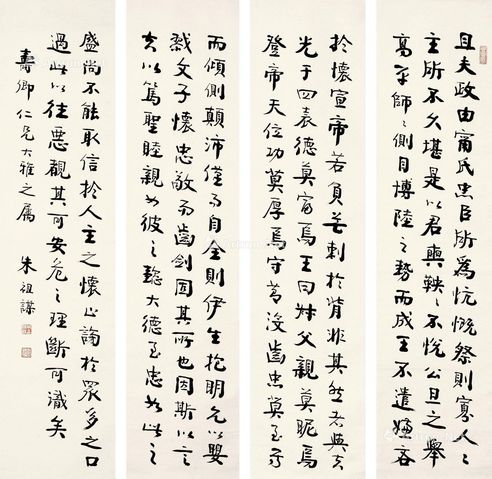 且夫政由甯氏忠臣所為忼慨祭則寡人〻
主所不久堪是以君奭鞅〻不悅公旦之舉
高平師〻側目博陸之勢而成王不遣嫌吝
於懷宣帝若負芒刺於背非其然者與夫
光于四表德莫富焉王曰叔父親莫昵焉
登帝天位功莫厚焉守節沒齒忠莫至焉
而傾側顛沛僅而自全則伊生抱明允以嬰
戮文子懷忠敬而齒劍固其所也因斯以言
夫以篤聖睦親如彼之懿大德至忠如此之
盛尚不能取信於人主之懷止謗於眾多之口
過此以往惡觀其可安危之理斷可識矣
壽卿仁兄大雅之屬 朱祖謀